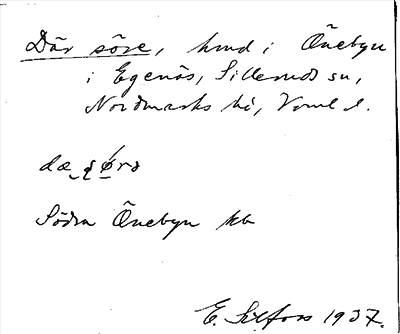 Där söre, hmd i Önebyn
i Egenäs, Sillerud sn,
Nordmarks hd, Vrml l.
Södra Önebyn kb
E. Silfors 1937.